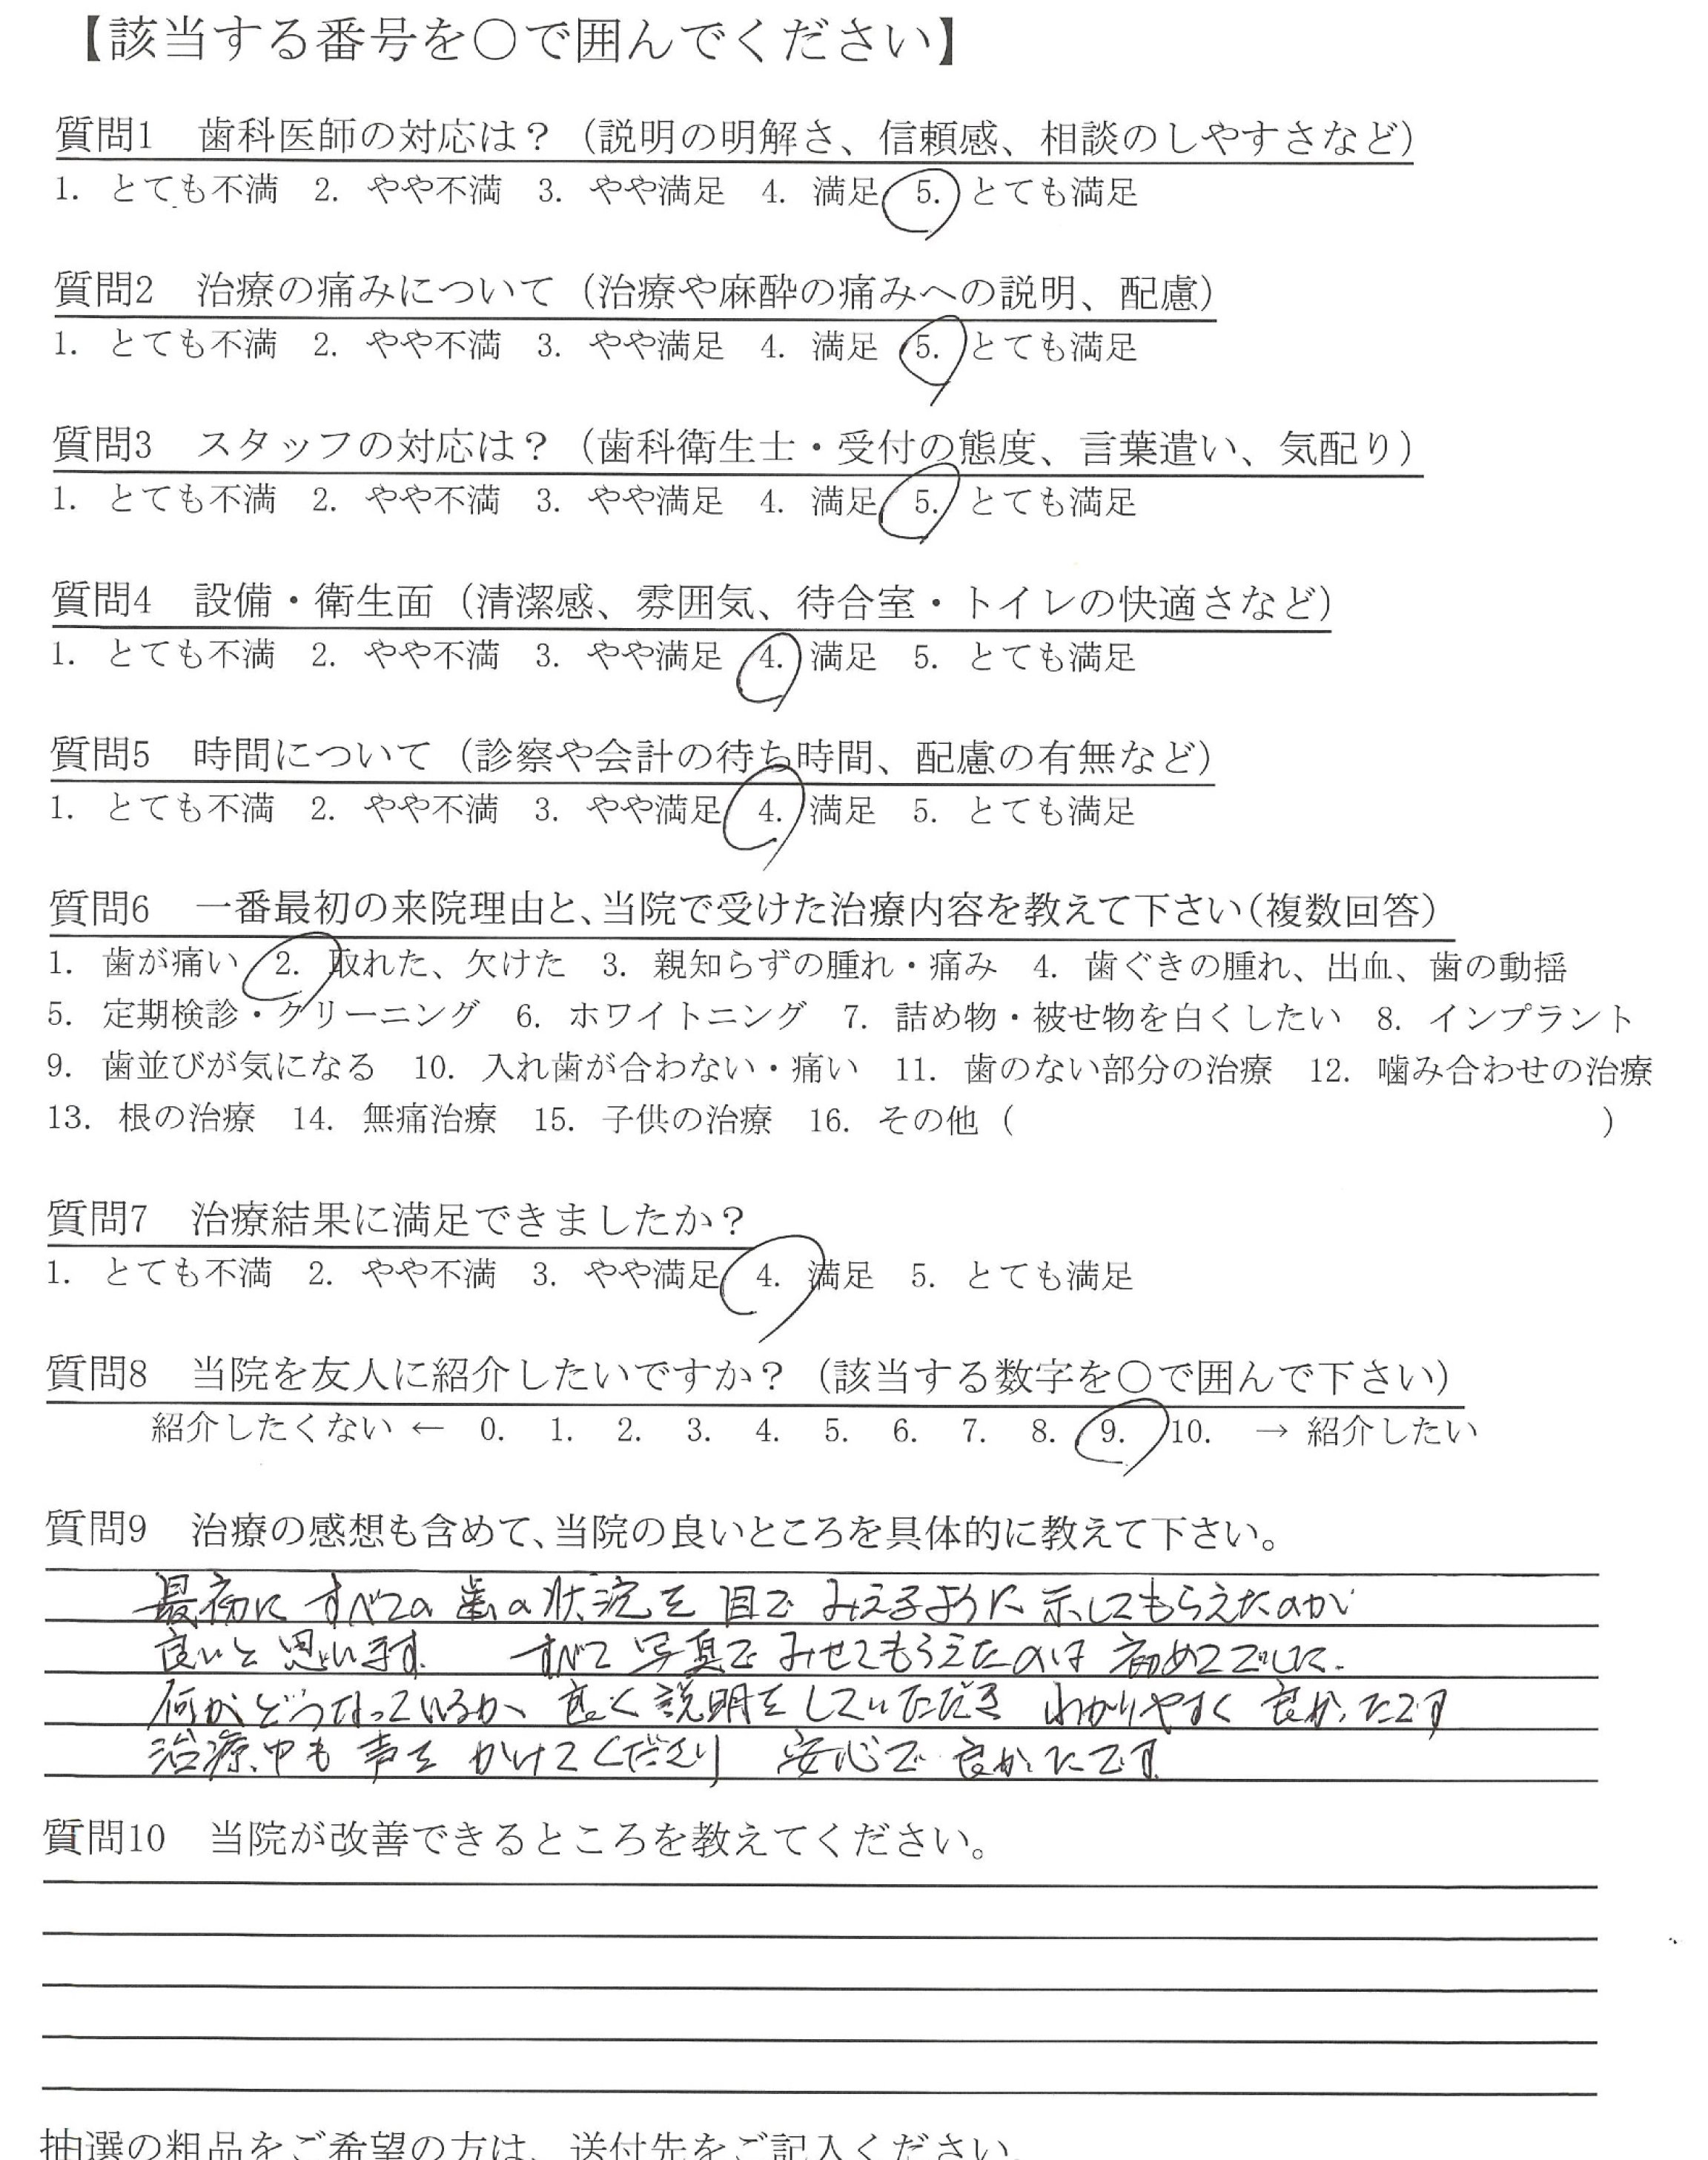 【該当する番号を〇で囲んでください】
質問1　歯科医師の対応は？（説明の明解さ、信頼感、相談のしやすさなど）
1. とても不満　2. やや不満　3. やや満足　4. 満足　5. とても満足
質問2　治療の痛みについて（治療や麻酔の痛みへの説明、配慮）
1. とても不満　2. やや不満　3. やや満足　4. 満足　5. とても満足
質問3　スタッフの対応は？（歯科衛生士・受付の態度、言葉遣い、気配り）
1. とても不満　2. やや不満　3. やや満足　4. 満足　5. とても満足
質問4　設備・衛生面（清潔感、雰囲気、待合室・トイレの快適さなど）
1. とても不満　2. やや不満　3. やや満足　4. 満足　5. とても満足
質問5　時間について（診察や会計の待ち時間、配慮の有無など）
1. とても不満　2. やや不満　3. やや満足　4. 満足　5. とても満足
質問6　一番最初の来院理由と、当院で受けた治療内容を教えて下さい（複数回答）
1. 歯が痛い　2. 取れた、欠けた　3. 親知らずの腫れ・痛み　4. 歯ぐきの腫れ、出血、歯の動揺
5. 定期検診・クリーニング　6. ホワイトニング　7. 詰め物・被せ物を白くしたい　8. インプラント
9. 歯並びが気になる　10. 入れ歯が合わない・痛い　11. 歯のない部分の治療　12. 噛み合わせの治療
13. 根の治療　14. 無痛治療　15. 子供の治療　16. その他（　　　　　　　　　）
質問7　治療結果に満足できましたか？
1. とても不満　2. やや不満　3. やや満足　4. 満足　5. とても満足
質問8　当院を友人に紹介したいですか？（該当する数字を〇で囲んで下さい）
紹介したくない ← 0. 1. 2. 3. 4. 5. 6. 7. 8. 9. 10. → 紹介したい
質問9　治療の感想も含めて、当院の良いところを具体的に教えて下さい。
最初に すべての 歯の状況を 目で みえるように 示してもらえたのが
良いと 思います.　すべて 写真で みせてもらえたのは 初めてでした.
何がどうなっているか、良く 説明を していただき わかりやすく 良かったです
治療中も 声を かけてくださり 安心で 良かったです.
質問10　当院が改善できるところを教えてください。
抽選の粗品をご希望の方は、送付先をご記入ください。